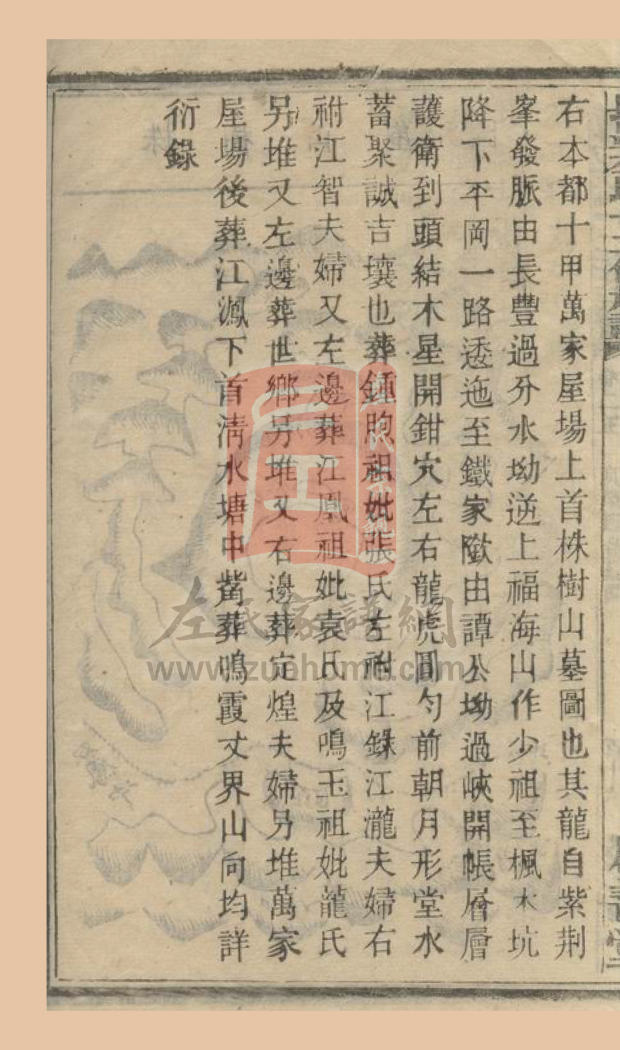 右本都十甲萬家屋場上首株樹山墓圖也其龍自紫荆
峯發脈由長豐過分水坳逆上福海山作少祖至楓木坑
降下平岡一路逶迤至鐵家隞由譚公坳過峽開帳層層
護衛到頭結木星開鉗穴左右龍虎圓勻前朝月形堂水
蓄聚誠吉壤也葬鍾煦祖妣張氏左祔江錄江瀧夫婦右
祔江智夫婦又左邊葬江鳳祖妣袁氏及鳴玉祖妣龍氏
另堆又左邊葬世鄉另堆又右邊葬定煌夫婦另堆萬家
屋場後葬江鳯下首清水塘中觜葬鳴霞丈界山向均詳
衍錄
左氏家譜網
www.zuohome.com